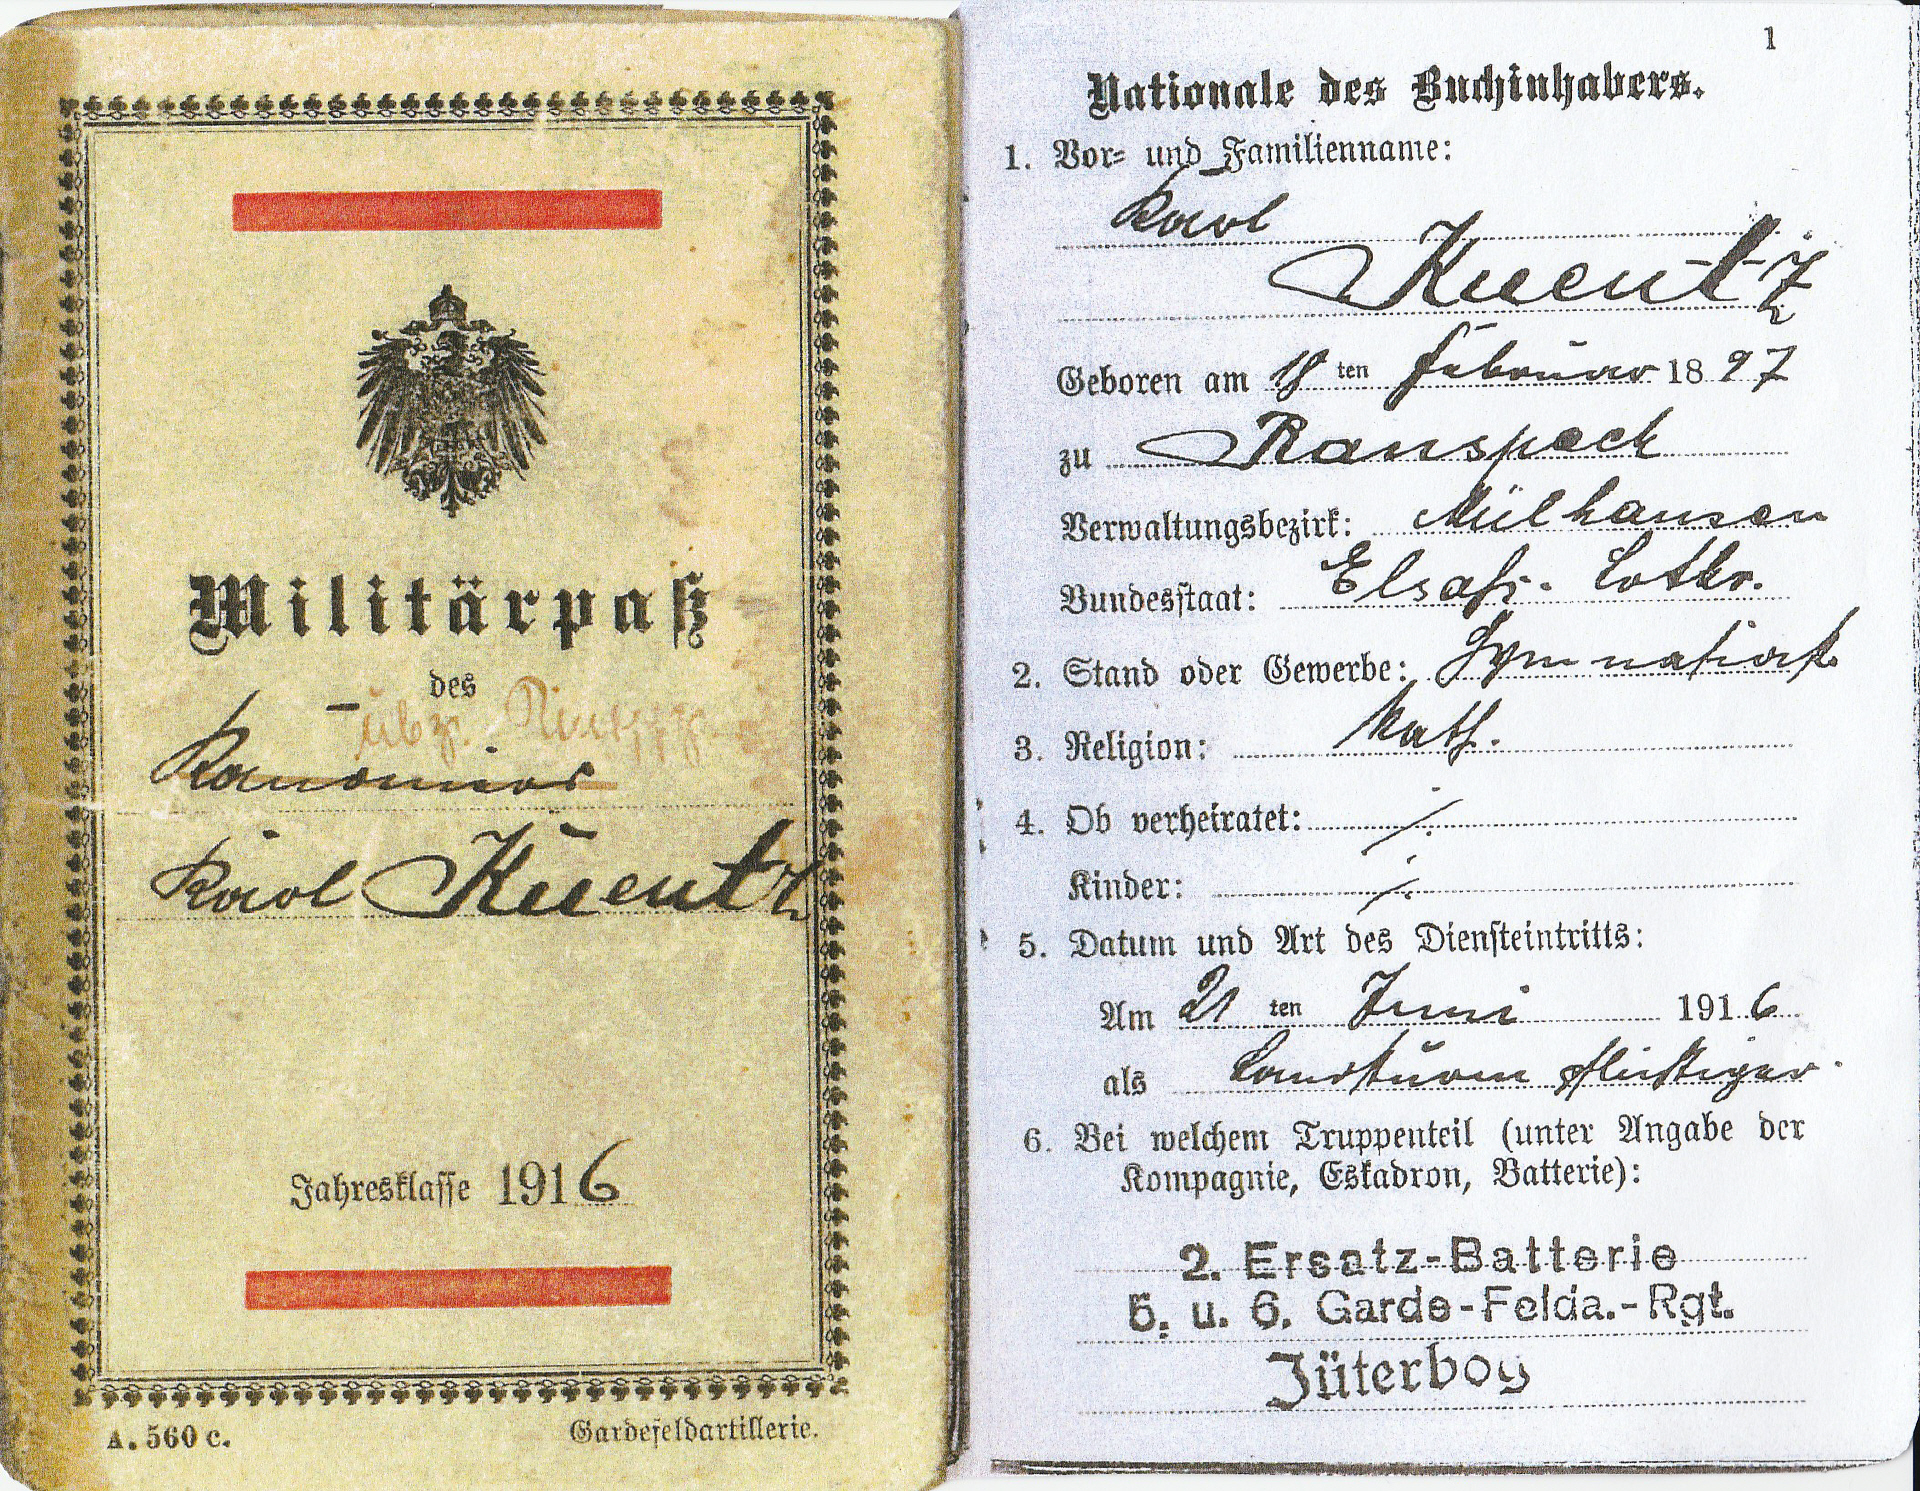 Militärpaß
des
übz.
Kanonier
Karl Kuentz
Jahresklasse 1916
A. 560 c.
Gardefeldartillerie.
1
Nationale des Buchinhabers.
1. Vor= und Familienname:
Karl
Kuentz
Geboren am 18 ten Februar 1897
zu Ranspach
Verwaltungsbezirk: Mülhausen
Bundesstaat: Elsaß. Lothr.
2. Stand oder Gewerbe: Gymnasiast
3. Religion: Kath.
4. Ob verheiratet: ./.
Kinder: ./.
5. Datum und Art des Diensteintritts:
Am 21 ten Juni 1916
als Landsturmpflichtiger
6. Bei welchem Truppenteil (unter Angabe der
Kompagnie, Eskadron, Batterie):
2. Ersatz-Batterie
5. u. 6. Garde-Felda.-Rgt.
Jüterbog